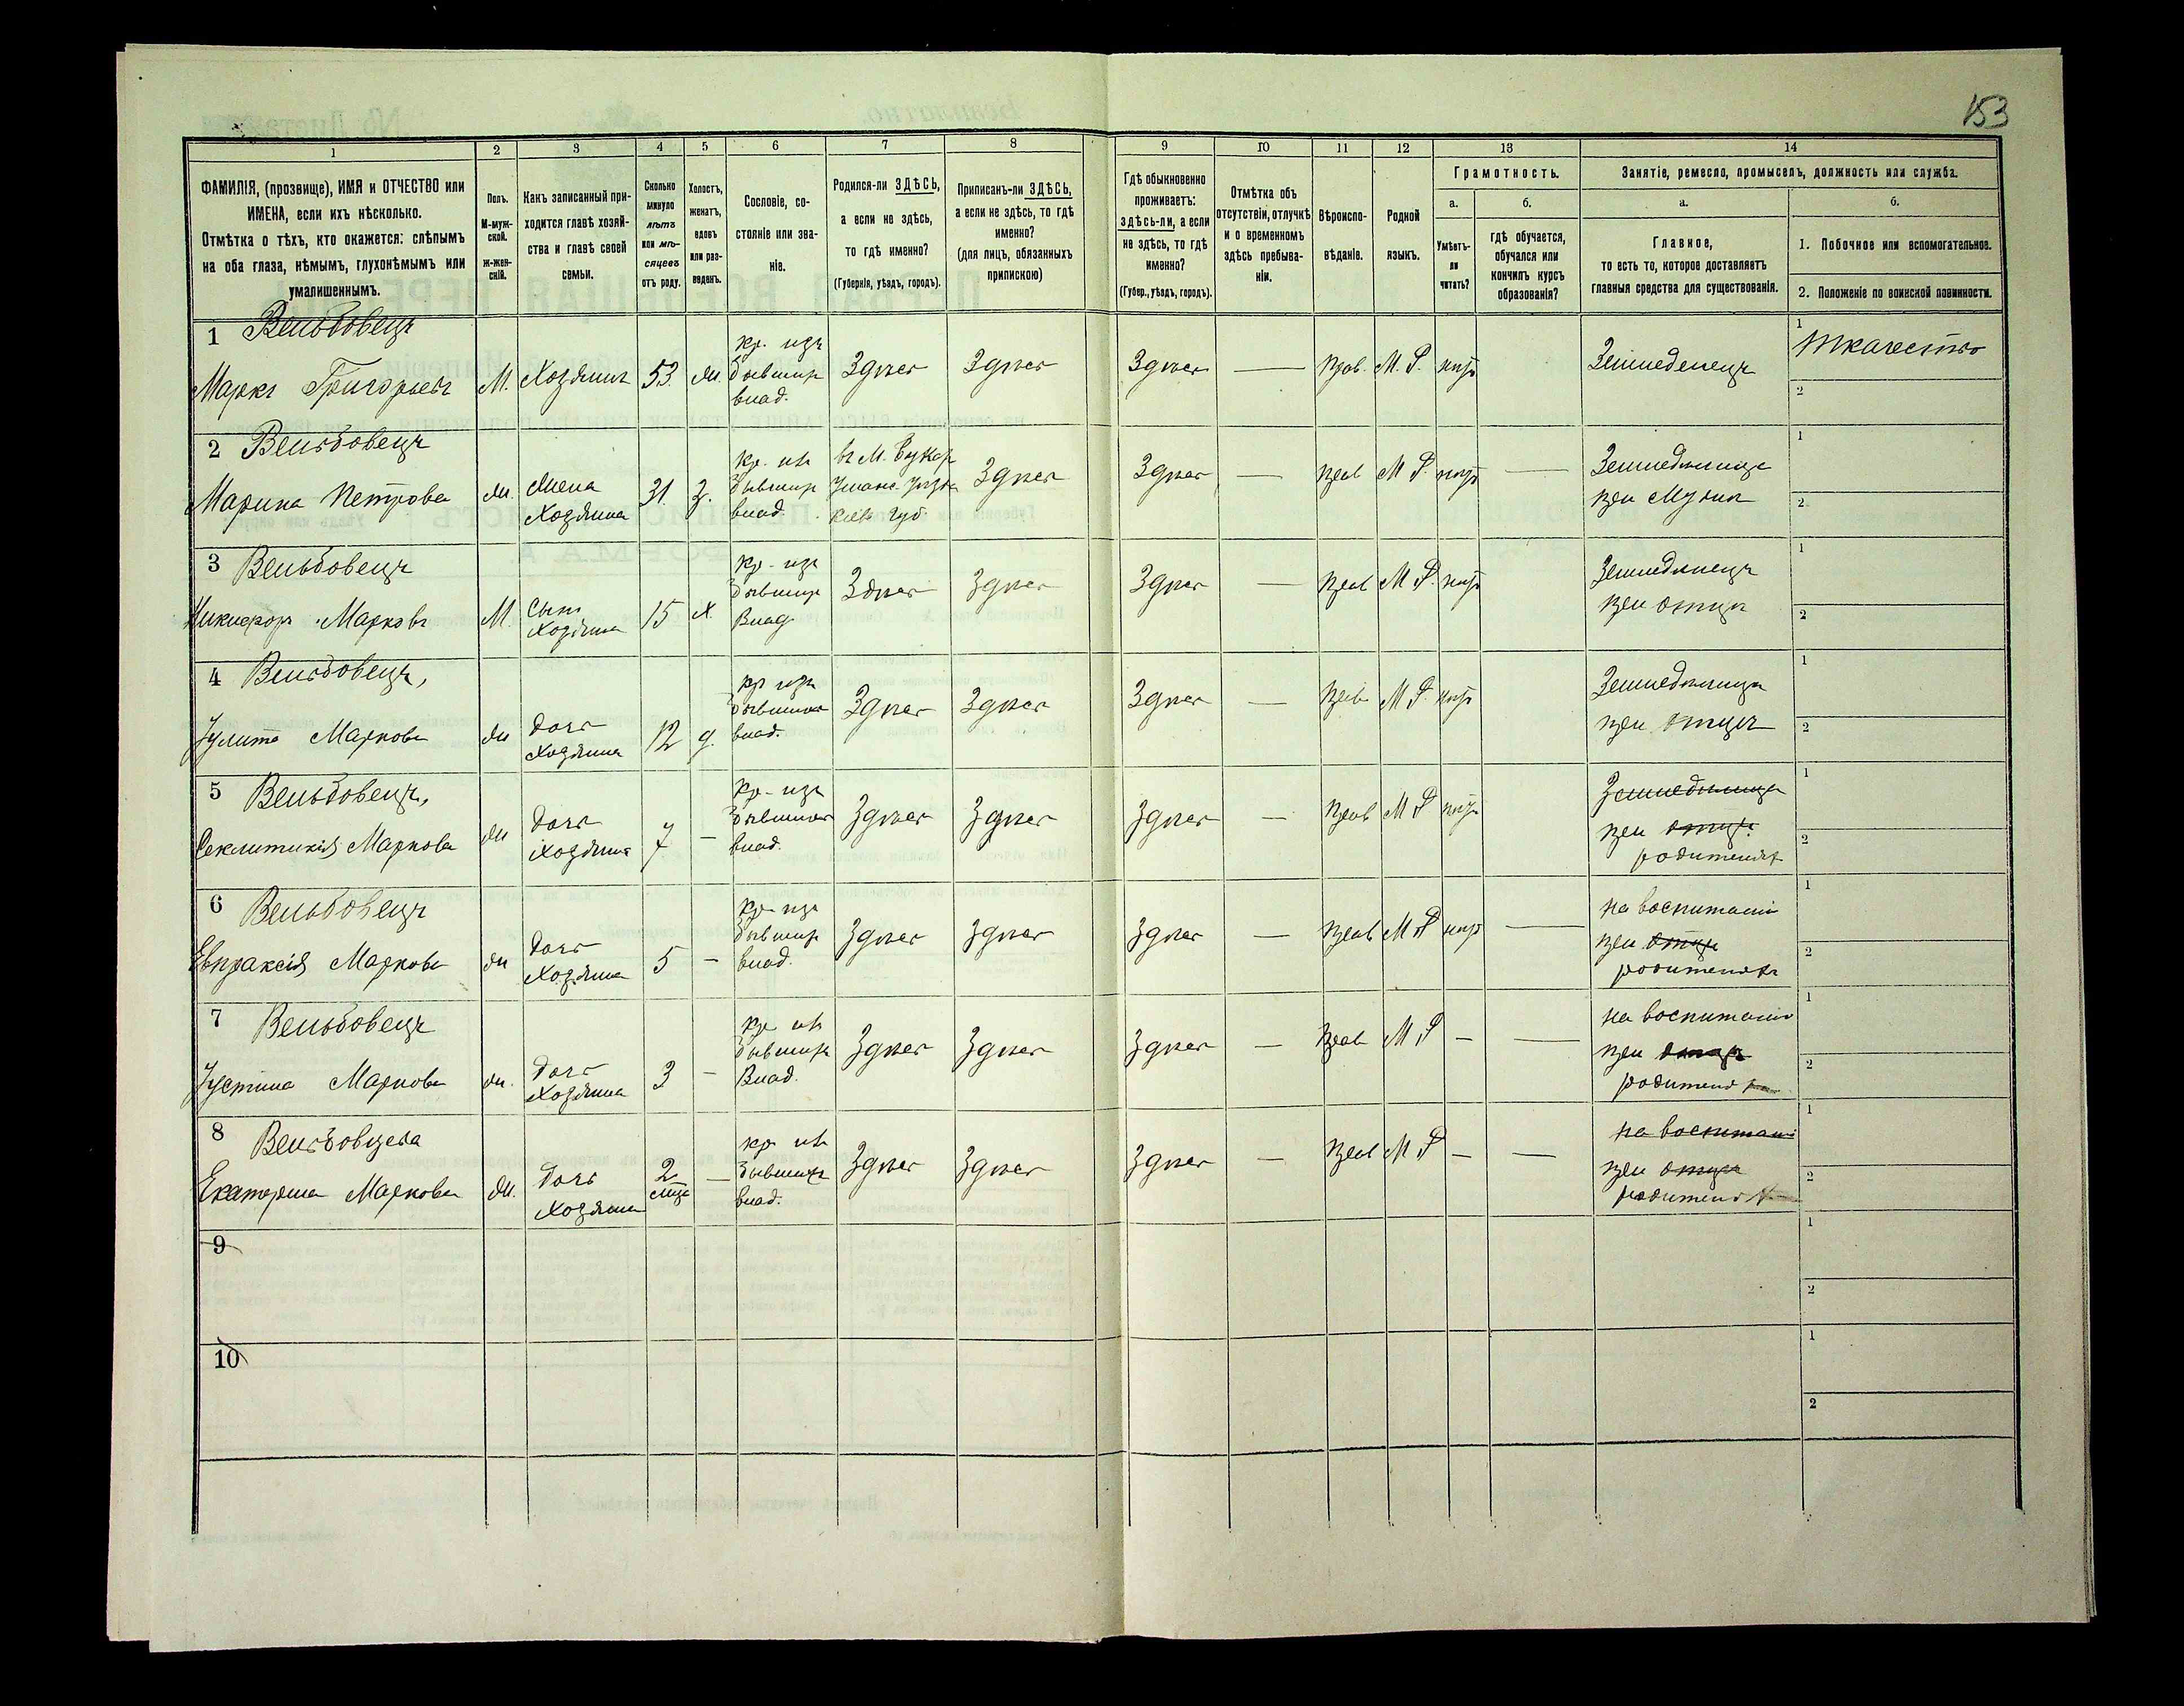 153
1 2 3 4 5 6 7 8 9 10 11 12 13 14
ФАМИЛІЯ, (прозвище), ИМЯ и ОТЧЕСТВО или
ИМЕНА, если ихъ нѣсколько.
Отмѣтка о тѣхъ, кто окажется: слѣпымъ
на оба глаза, нѣмымъ, глухонѣмымъ или
умалишеннымъ.
Полъ.
М-муж-
ской.
ж-жен-
скій.
Какъ записанный при-
ходится главѣ хозяй-
ства и главѣ своей
семьи.
Сколько
минуло
лѣтъ
или мѣ-
сяцевъ
отъ роду.
Холостъ,
женатъ,
вдовъ
или раз-
веденъ.
Сословіе, со-
стояніе или зва-
ніе.
Родился-ли ЗДѢСЬ,
а если не здѣсь,
то гдѣ именно?
(Губернія, уѣздъ, городъ).
Приписанъ-ли ЗДѢСЬ,
а если не здѣсь, то гдѣ
именно?
(для лицъ, обязанныхъ
припискою)
Гдѣ обыкновенно
проживаетъ:
здѣсь-ли, а если
не здѣсь, то гдѣ
именно?
(Губер., уѣздъ, городъ).
Отмѣтка объ
отсутствіи, отлучкѣ
и о временномъ
здѣсь пребыва-
ніи.
Вѣроиспо-
вѣданіе.
Родной
языкъ.
Грамотность.
а.
Умѣетъ-
ли
читать?
б.
гдѣ обучается,
обучался или
кончилъ курсъ
образованія?
Занятіе, ремесло, промыселъ, должность или служба.
а.
Главное,
то есть то, которое доставляетъ
главныя средства для существованія.
б.
1. Побочное или вспомогательное.
2. Положеніе по воинской повинности.
1 Вельбовецъ
Маркъ Григорьевъ М. Хозяинъ 53 ж. кр. изъ бывших влад. Здѣсь Здѣсь Здѣсь — Прав. М. Р. нѣтъ Земледелецъ 1 Ткачество
2
2 Вельбовецъ
Марина Петрова ж. Жена Хозяина 31 з. кр. изъ бывших влад. Здѣсь Здѣсь — Прав М Р. нѣтъ — Земледѣлица при Мужѣ 1
2
3 Вельбовецъ
Никифоръ Марковъ М. Сынъ Хозяина 15 х. кр. изъ бывших Влад Здѣсь Здѣсь Здѣсь — Прав М Р. нѣтъ Земледѣлецъ при отцѣ 1
2
4 Вельбовецъ,
Іулита Маркова ж Дочь Хозяина 12 д. кр изъ бывших влад. Здѣсь Здѣсь Здѣсь — Прав М Р. нѣтъ Земледѣлица при отцѣ 1
2
5 Вельбовецъ,
Маркова ж Дочь Хозяина 7 — кр. изъ бывших влад. Здѣсь Здѣсь Здѣсь — Прав М Р нѣтъ Земледѣлица при отцѣ родителях 1
2
6 Вельбовецъ
Евпраксія Маркова ж Дочь Хозяина 5 — кр. изъ бывших влад. Здѣсь Здѣсь Здѣсь — Прав М Р нѣтъ — на воспитаніи при отцѣ родителяхъ 1
2
7 Вельбовецъ
Іустина Маркова ж. Дочь Хозяина 3 — кр изъ бывших Влад. Здѣсь Здѣсь Здѣсь — Прав М Р — — на воспитаніи при отцѣ родителях 1
2
8 Вельбовцева
Екатерина Маркова ж. Дочь Хозяина 2 — кр изъ бывшихъ влад. Здѣсь Здѣсь Здѣсь — Прав М Р — — на воспитаніи при отцѣ родителях 1
2
9 1
2
10 1
2